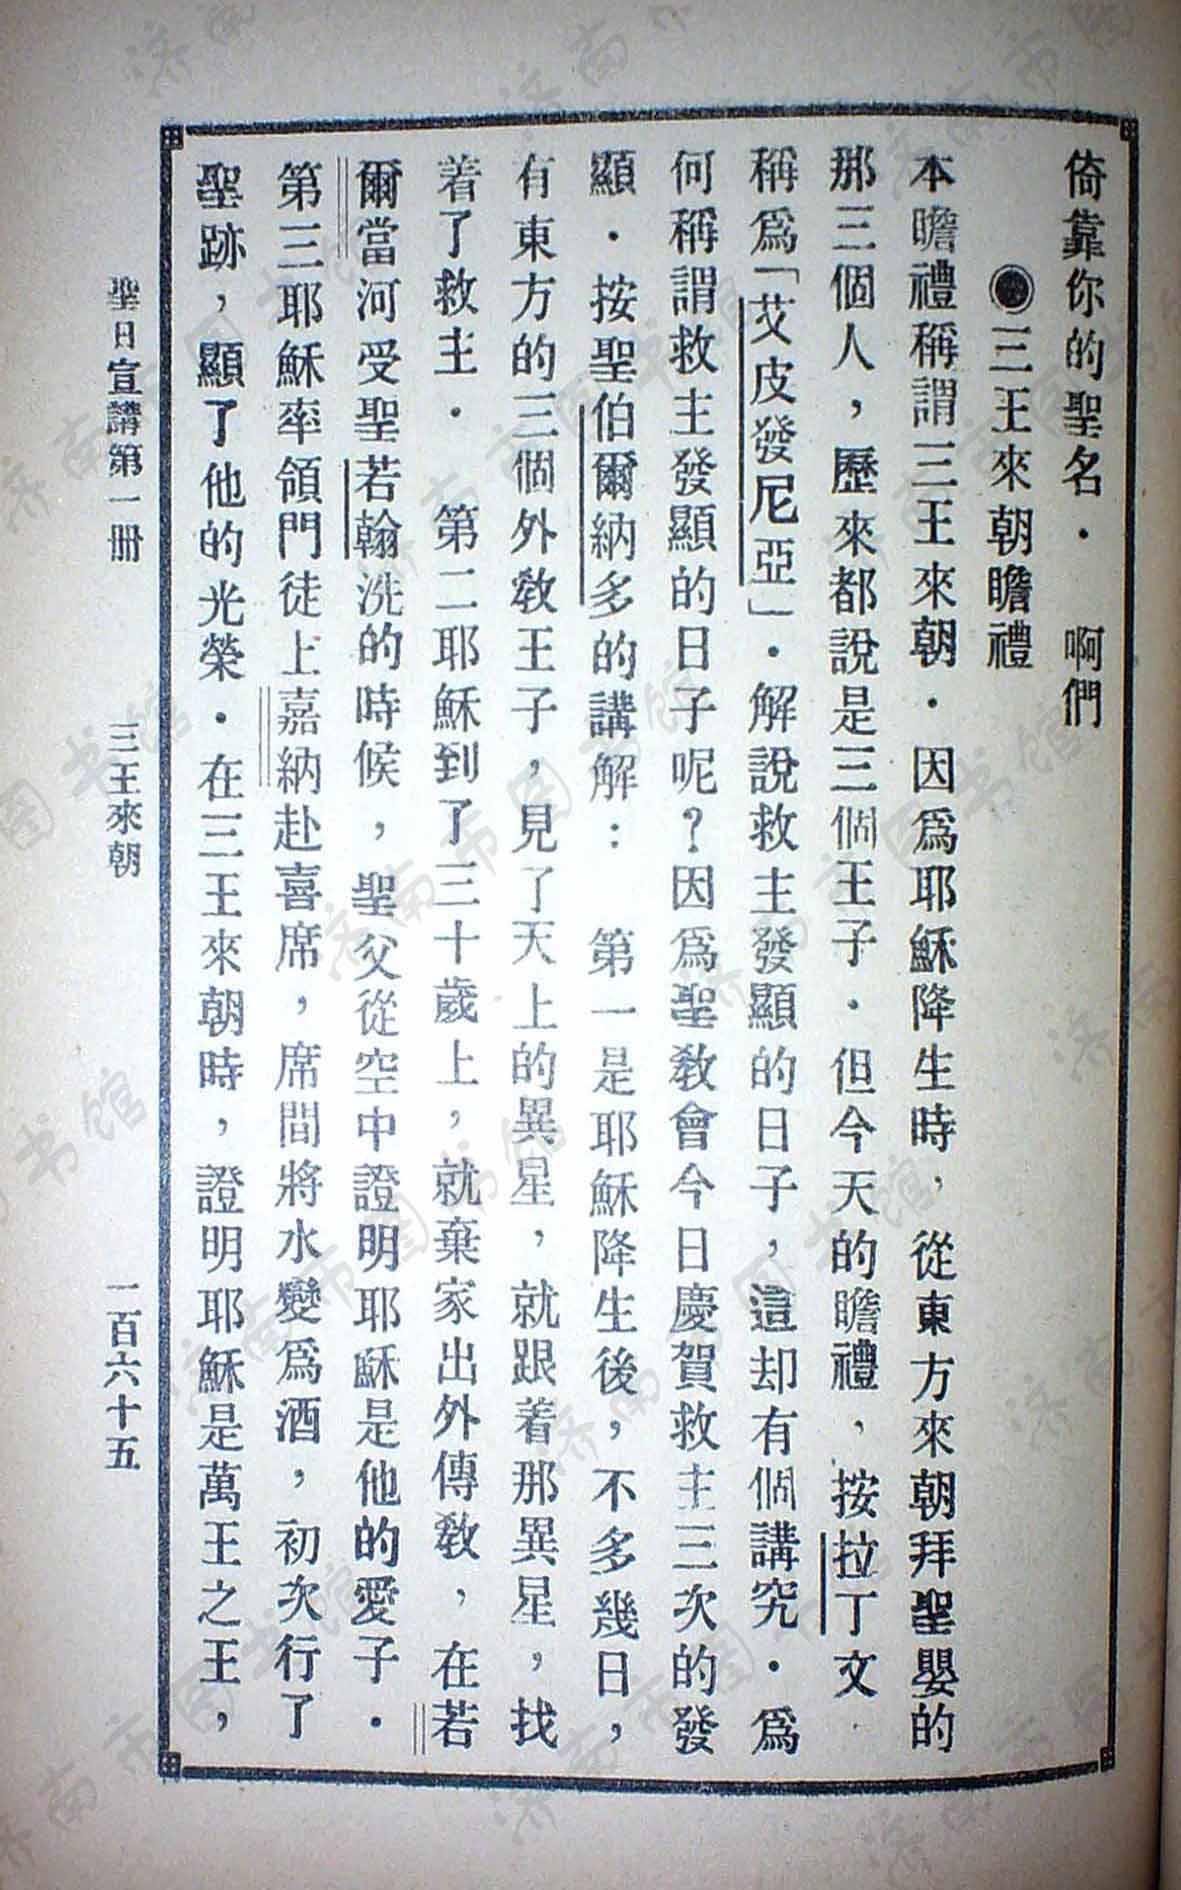 倚靠你的聖名．　啊們
●三王來朝瞻禮
本瞻禮稱謂三王來朝．因爲耶穌降生時，從東方來朝拜聖嬰的
那三個人，歷來都說是三個王子．但今天的瞻禮，按拉丁文
稱爲「艾皮發尼亞」．解說救主發顯的日子，這却有個講究．爲
何稱謂救主發顯的日子呢？因爲聖敎會今日慶賀救主三次的發
顯．按聖伯爾納多的講解：　第一是耶穌降生後，不多幾日，
有東方的三個外敎王子，見了天上的異星，就跟着那異星，找
着了救主．　第二耶穌到了三十歲上，就棄家出外傳敎，在若
爾當河受聖若翰洗的時候，聖父從空中證明耶穌是他的愛子．
第三耶穌率領門徒上嘉納赴喜席，席間將水變爲酒，初次行了
聖跡，顯了他的光榮．在三王來朝時，證明耶穌是萬王之王，
聖日宣講第一冊　三王來朝　一百六十五
济南市图书馆